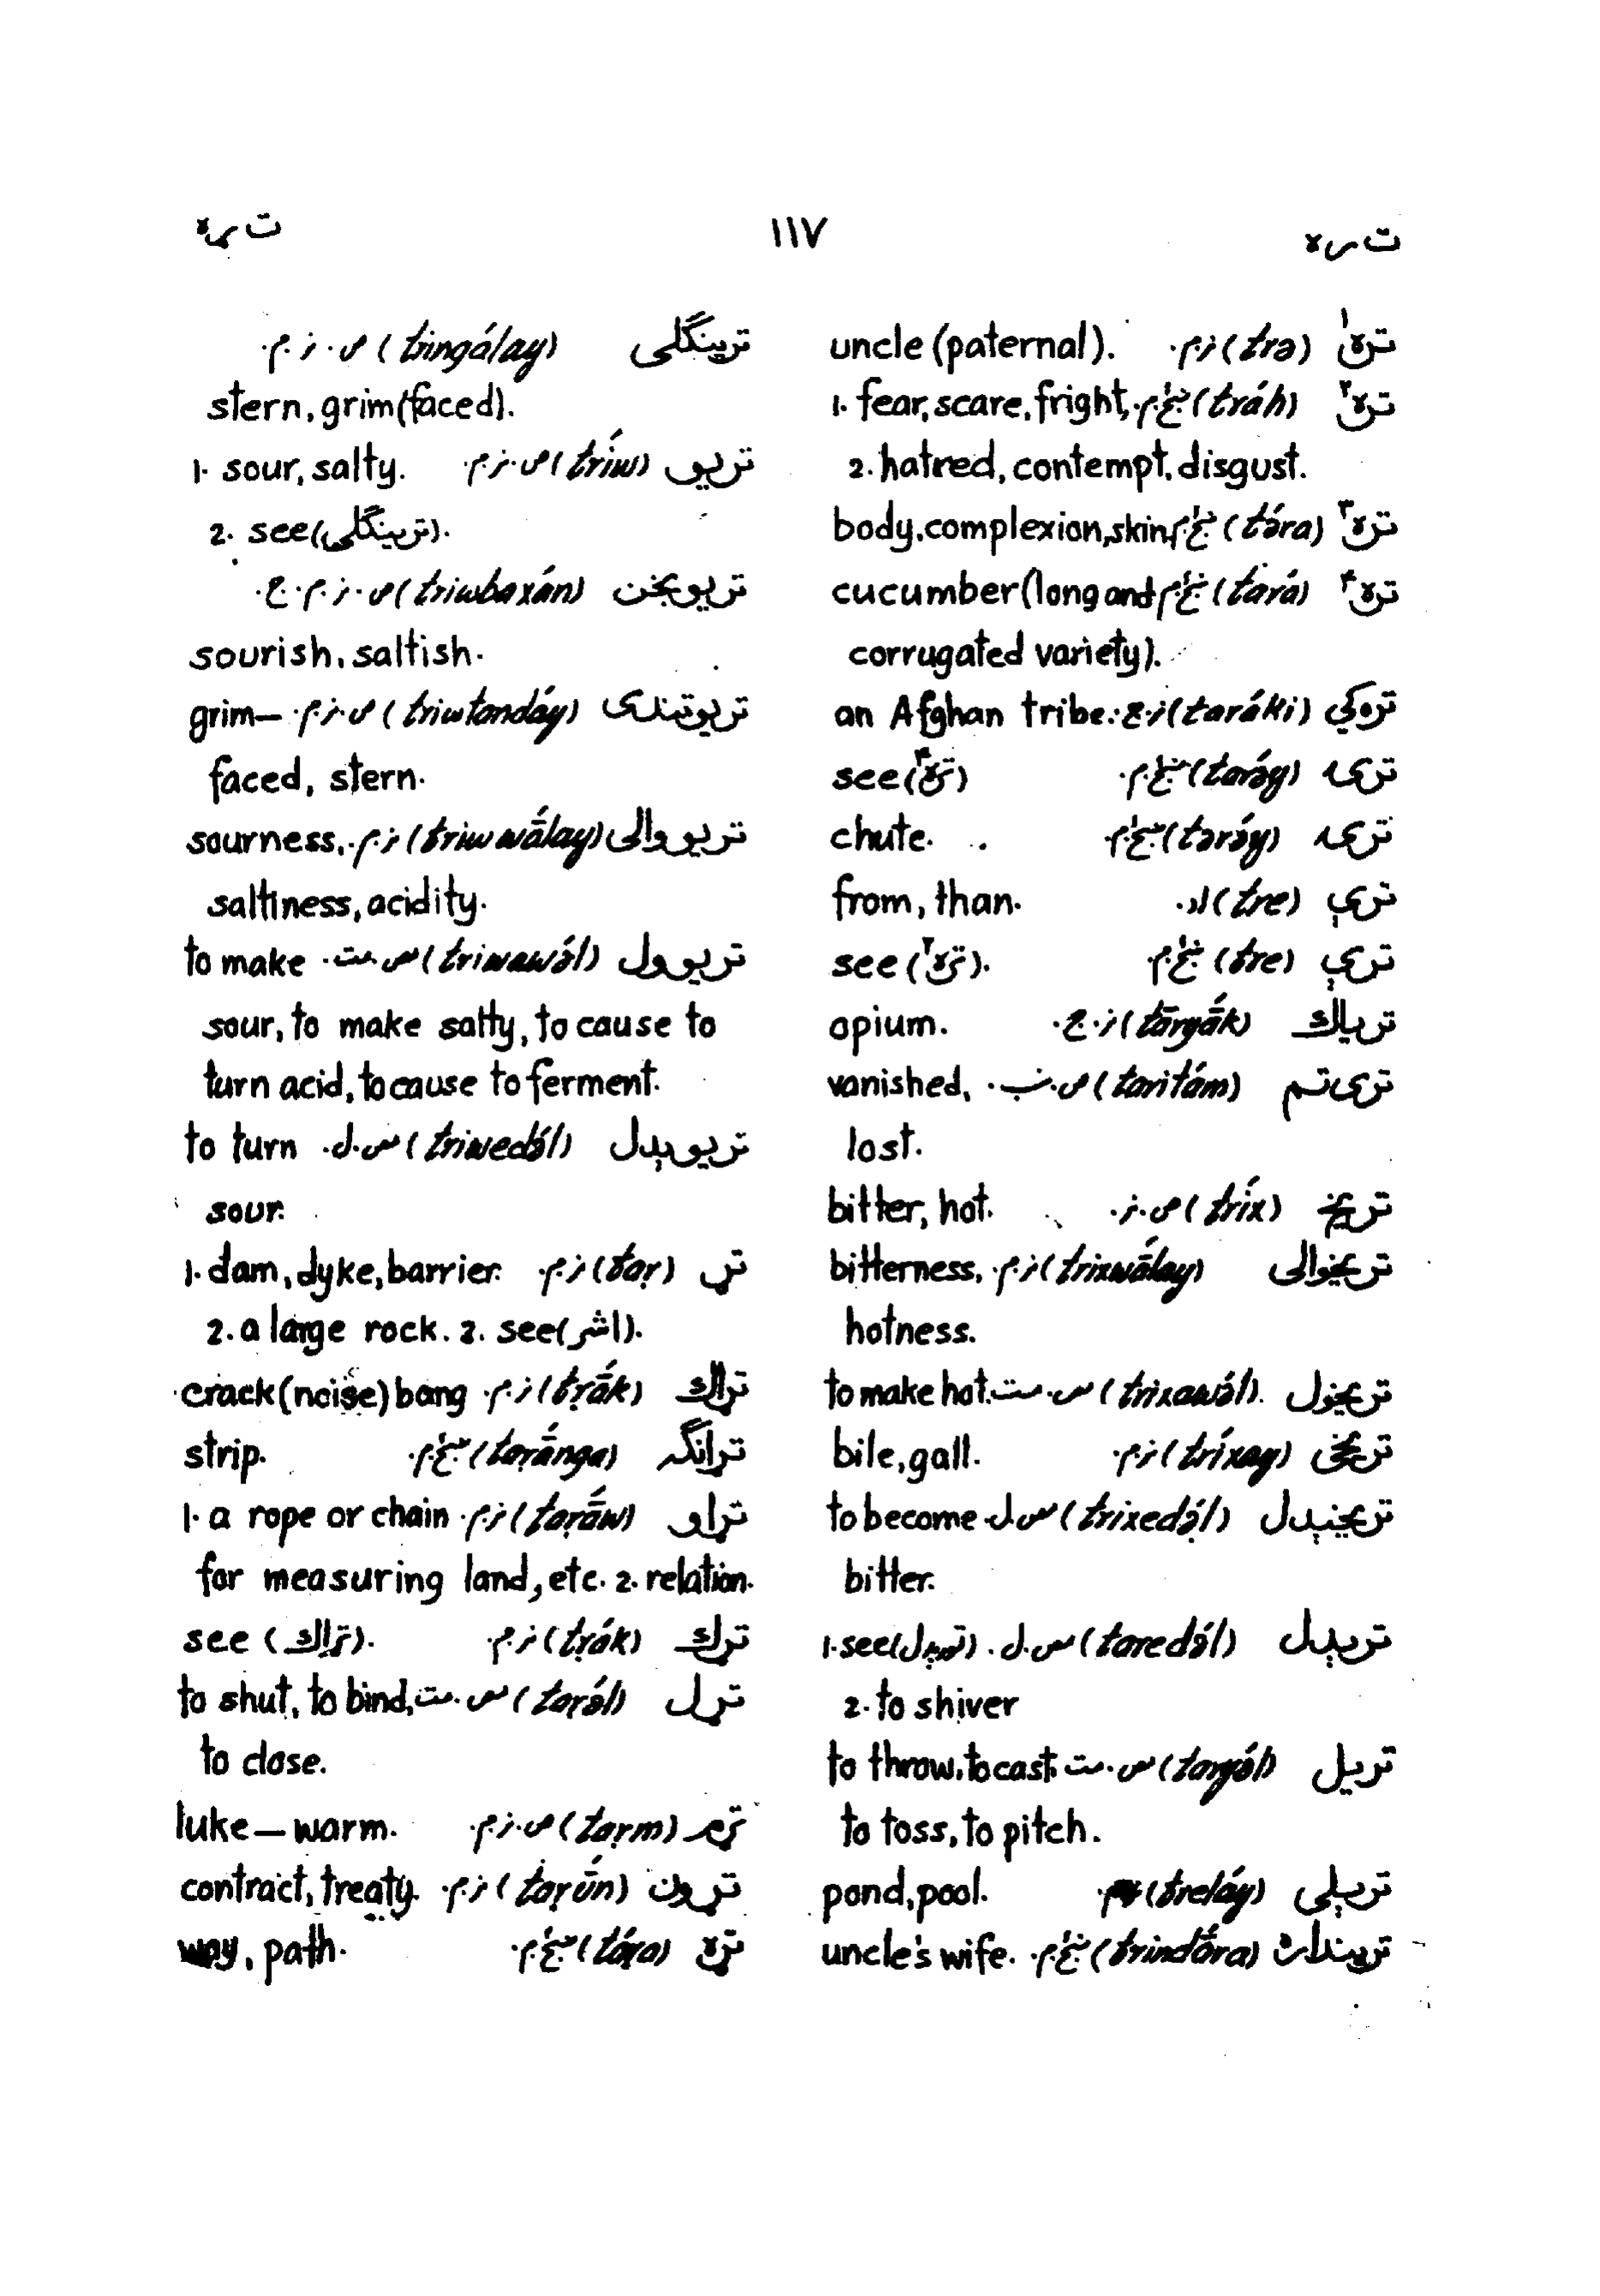 ت ره ۱۱۷ ت ړه
تره۱ (trə) ز.م. uncle (paternal).
تره۲ (tráh) ښځ.م. 1. fear, scare, fright,
2. hatred, contempt, disgust.
تره۳ (tə́ra) ښځ.م. body, complexion, skin
تره۴ (tará) ښځ.م. cucumber (long and
corrugated variety).
تره‌کي (taráki) ز.ج. an Afghan tribe.
ترۍ (tarə́y) ښځ.م. see (تره۴)
ترۍ (tərə́y) ښځ.م. chute.
ترې (tre) اد. from, than.
ترې (tre) ښځ.م. see (تره۲).
ترياك (tāryā́k) ز.ج. opium.
تری تم (taritám) ص.نب. vanished,
lost.
تريخ (tríx) ص.ز. bitter, hot.
تريخوالی (trixwā́lay) ز.م. bitterness,
hotness.
تريخول (trixawə́l). س.مت. to make hot.
تريخی (tríxay) ز.م. bile, gall.
تريخېدل (trixedə́l) س.ل. to become
bitter.
ترېدل (taredə́l) س.ل. 1. see (تورېدل).
2. to shiver
تريل (taryə́l) س.مت. to throw, to cast,
to toss, to pitch.
ترېلی (treláy) pond, pool.
تريندار (trindā́ra) ښځ.م. uncle's wife.
ترينگلی (tringálay) ص.ز.م.
stern, grim (faced).
تريو (tríw) ص.ز.م. 1. sour, salty.
2. see (ترينگلی).
تريوبخن (triwbaxán) ص.ز.م.ج.
sourish, saltish.
تريوتندی (triwtandáy) ص.ز.م. grim—
faced, stern.
تريووالی (triwwā́lay) ز.م. sourness,
saltiness, acidity.
تريوول (triwawə́l) س.مت. to make
sour, to make salty, to cause to
turn acid, to cause to ferment.
تريوېدل (triwedə́l) س.ل. to turn
sour.
تړ (taṛ) ز.م. 1. dam, dyke, barrier.
2. a large rock. 2. see (اتر).
تړاك (tṛā́k) ز.م. crack (noise) bang
تړانگه (taṛā́nga) ښځ.م. strip.
تړاو (taṛā́w) ز.م. 1. a rope or chain
for measuring land, etc. 2. relation.
تړك (tṛák) ز.م. see (تړاك).
تړل (taṛə́l) س.مت. to shut, to bind,
to close.
تړم (taṛm) ص.ز.م. luke—warm.
تړون (taṛū́n) ز.م. contract, treaty.
تړه (táṛa) ښځ.م. way, path.